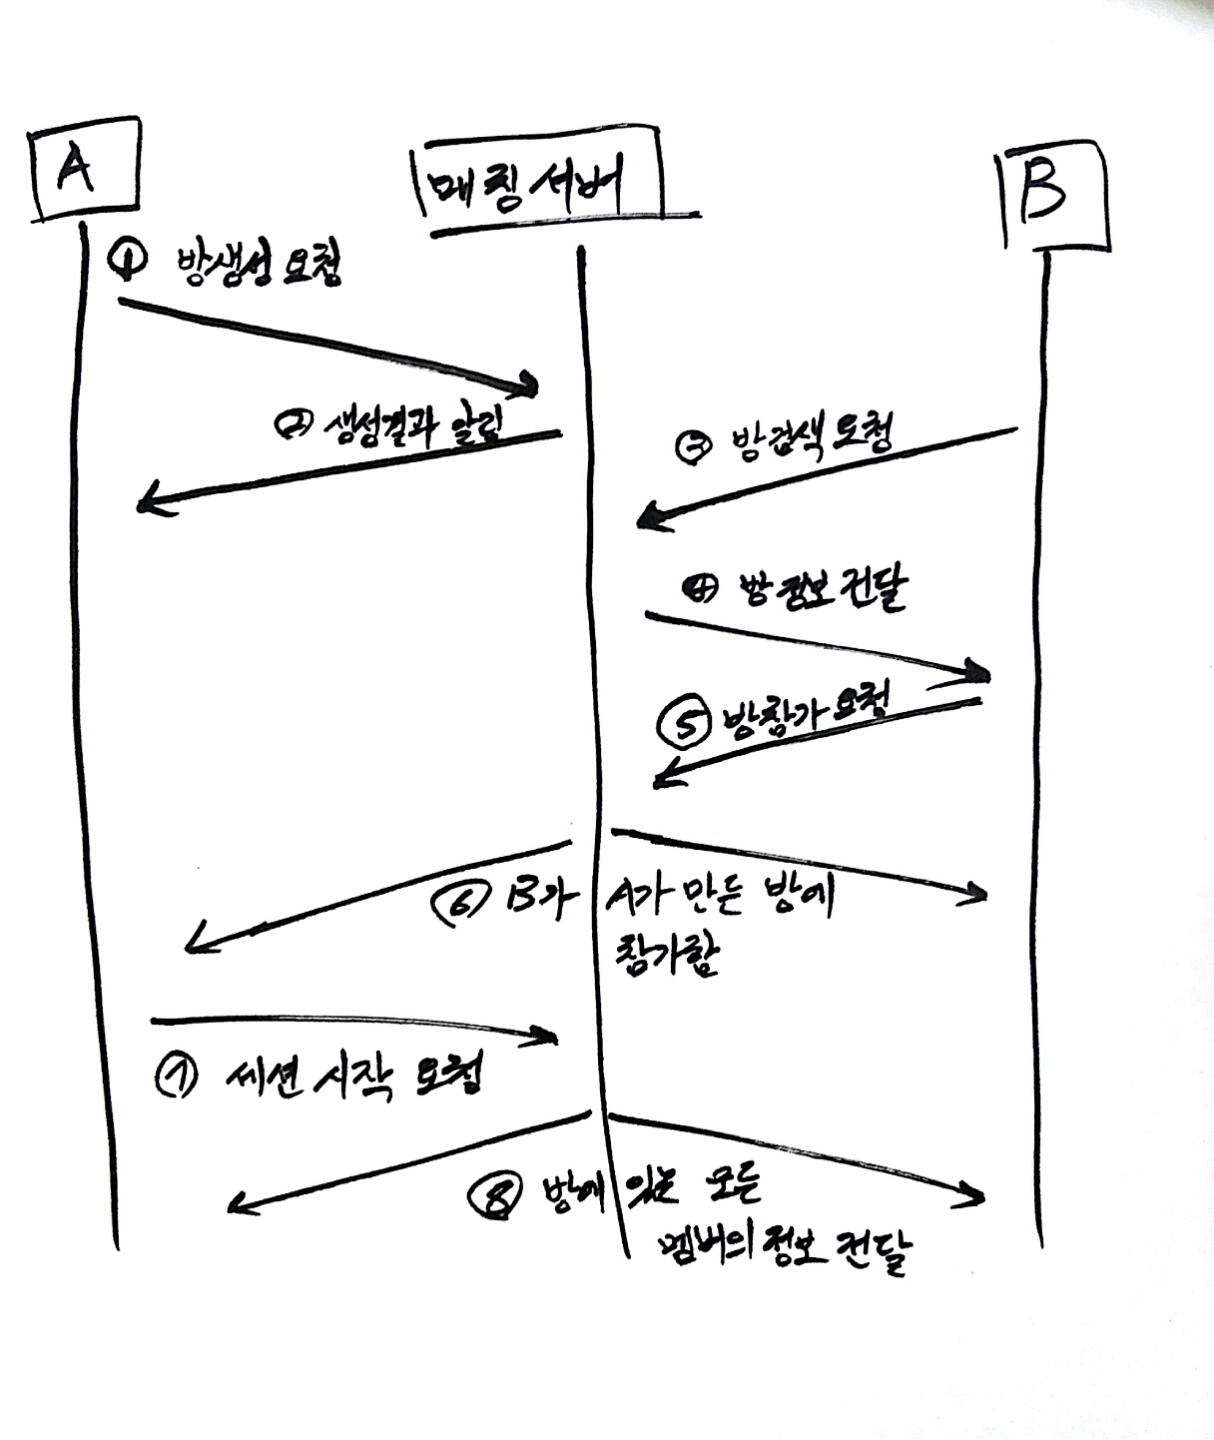 A
매칭서버
B
① 방생성 요청
② 생성결과 알림
③ 방검색 요청
④ 방 정보 전달
⑤ 방참가 요청
⑥ B가 A가 만든 방에
참가함
⑦ 세션 시작 요청
⑧ 방에 있는 모든
멤버의 정보 전달